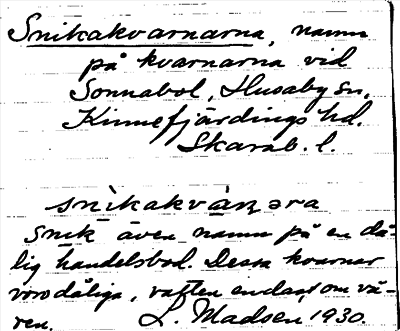 Snikakvarnarna, namn
på kvarnarna vid
Sonnabol, Husaby sn,
Kinnefjärdings hd.
Skarab. l.
snikakvàṇəra
snik även namn på en då-
lig handelsbod. Dessa kvarnar
voro dåliga, vatten endast om vå-
ren. L. Madsen, 1930.